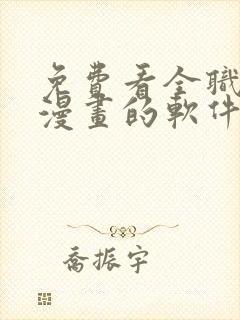 免費看全職
漫畫的軟件
喬振宇